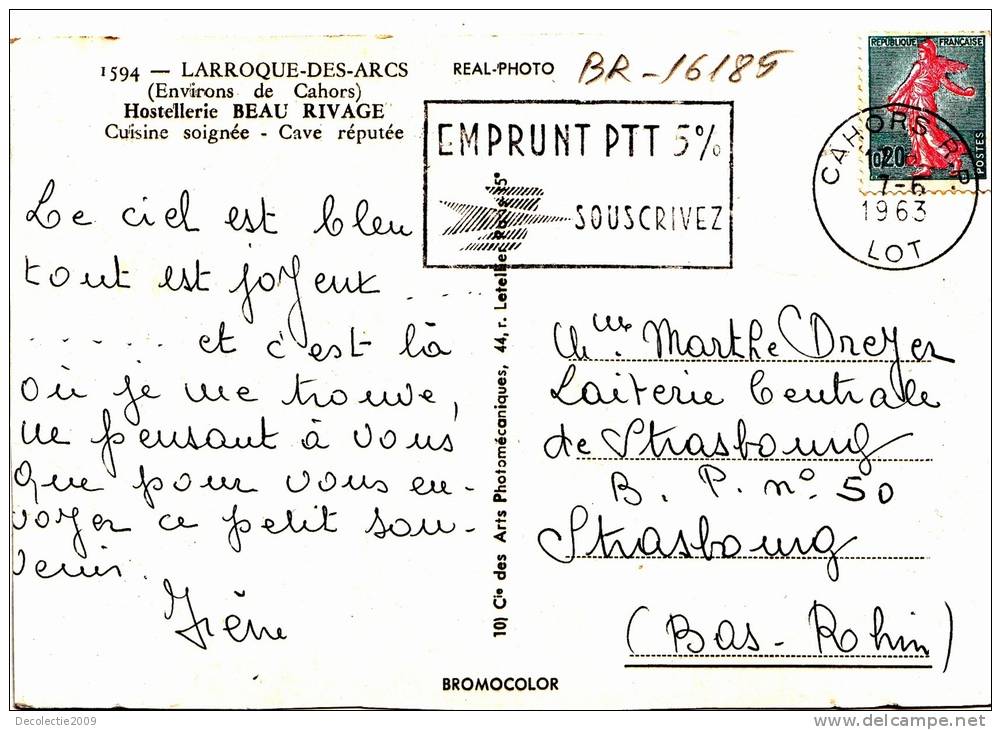 1594 — LARROQUE-DES-ARCS
(Environs de Cahors)
Hostellerie BEAU RIVAGE
Cuisine soignée - Cave réputée
REAL-PHOTO
BR-16185
EMPRUNT PTT 5%
SOUSCRIVEZ
REPUBLIQUE FRANÇAISE
0,20
POSTES
CAHORS R.P.
7-6
1963
LOT
Le ciel est bleu
tout est joyeux ....
...... et c'est là
où je me trouve,
ne pensant à vous
que pour vous en-
voyer ce petit sou-
venir.
Irène
10) Cie des Arts Photomécaniques, 44, r. Letellier
Mlle. Marthe Dreyer
Laiterie Centrale
de Strasbourg
B. P. n° 50
Strasbourg
(Bas-Rhin)
BROMOCOLOR
Decolectie2009
www.delcampe.net